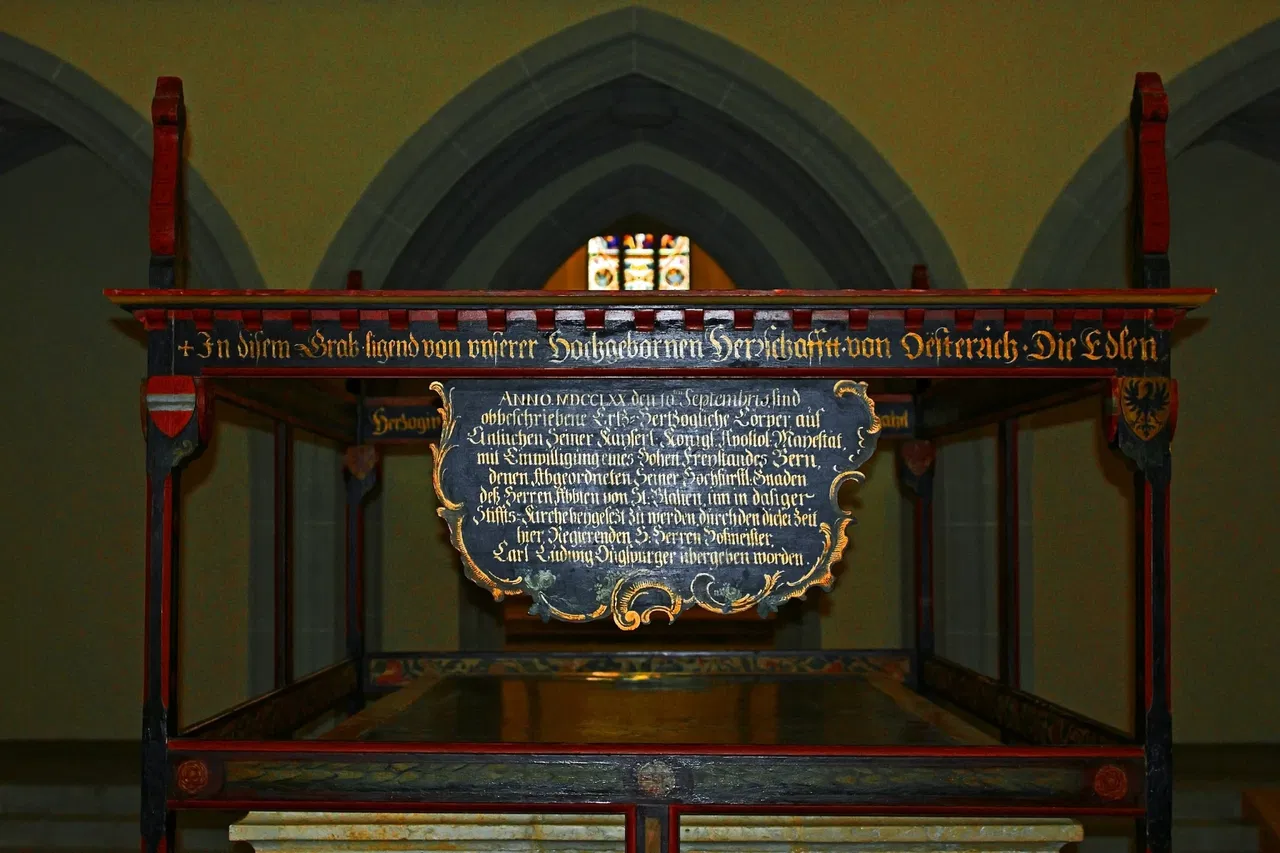 + In disem Grab ligend von unserer Hochgebornen Herschafftt von Oesterrich · Die Edlen
Hertzogin
ANNO MDCCLXX den 10ten Septembris sind
obbeschriebene Ertz-Hertzogliche Cörper auf
Ansuchen Seiner Kayserl. Königl. Apostol. Mayestät,
mit Einwilligung eines Hohen Freystandes Bern,
denen Abgeordneten Seiner Hochfürstl. Gnaden
deß Herren Abbten von St. Blasien, um in dasiger
Stiffts-Kirche beygesezt zu werden durch den dieser Zeit
hier Regierenden H. Herren Hofmeister,
Carl Ludwig Ougspurger übergeben worden.